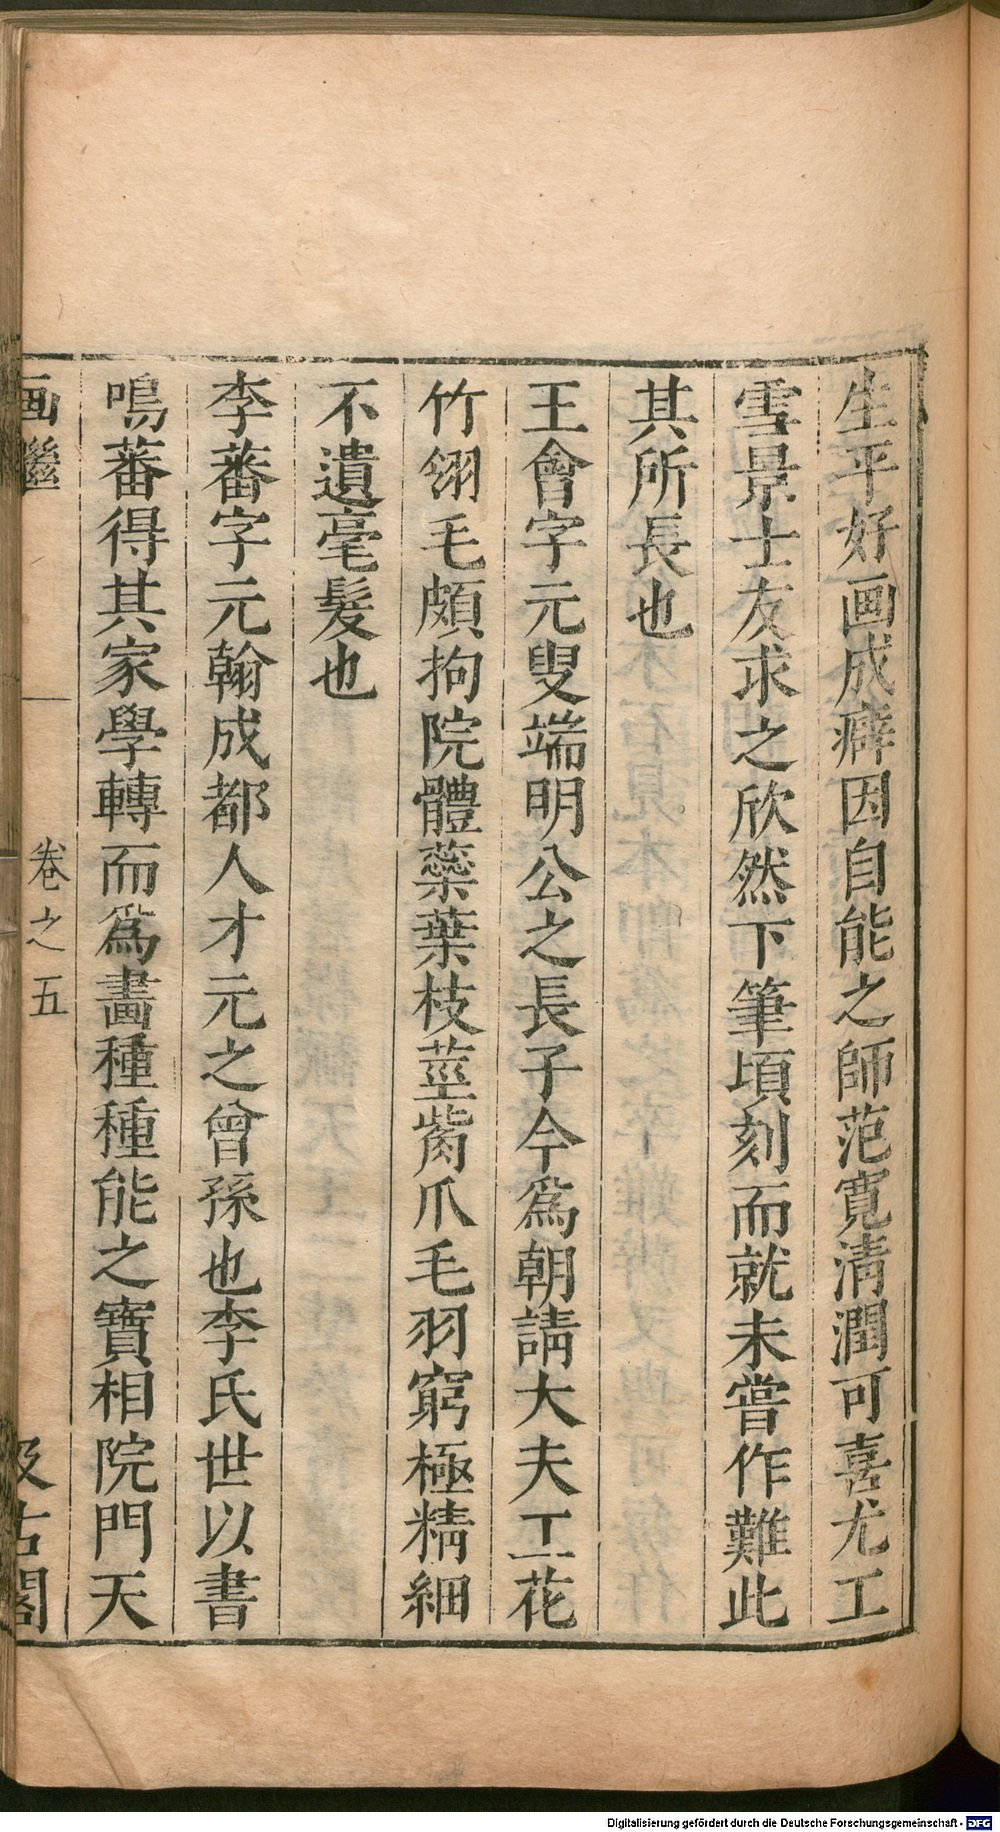 生平好画成癖因自能之師范寛清潤可喜尤工
雪景士友求之欣然下筆頃刻而就未嘗作難此
其所長也
王會字元叟端明公之長子今爲朝請大夫工花
竹翎毛頗拘院體蘂葉枝莖觜爪毛羽窮極精細
不遺毫髮也
李蕃字元翰成都人才元之曾孫也李氏世以書
鳴蕃得其家學轉而爲畵種種能之寶相院門天
画繼
卷之五
汲古閣
Digitalisierung gefördert durch die Deutsche Forschungsgemeinschaft - DFG